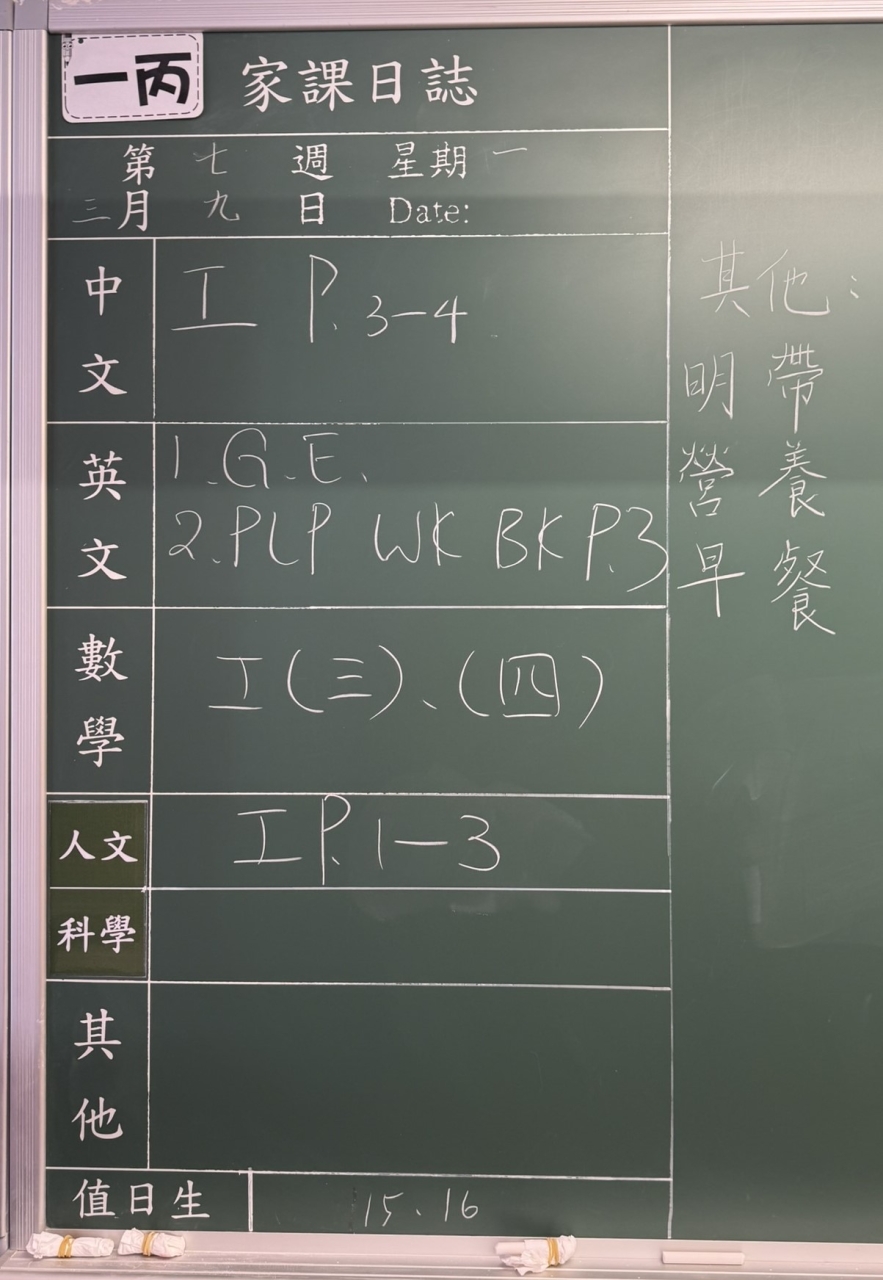 一丙 家課日誌
第 七 週 星期 一
三月 九 日 Date:
中文 工 P. 3-4
英文 1.G.E.
2.PLP WK BK P.3
數學 工(三)、(四)
人文 工 P.1-3
科學
其他
值日生 15、16
其他：
明 帶
營 養
早 餐